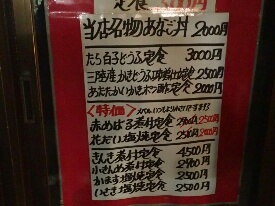 定食 円
当店名物あなご丼 2000円
たら白子どうふ定食 3000円
三陸産かきどうふ味噌仕立定食 2500円
あたたかいかきポン酢定食 2000円
〈特価〉
赤めばる煮付定食 2500円
花だい塩焼定食 2500円
きんき煮付定食 4500円
小きんめ煮付定食 2900円
かます塩焼定食 2500円
いさき塩焼定食 2500円